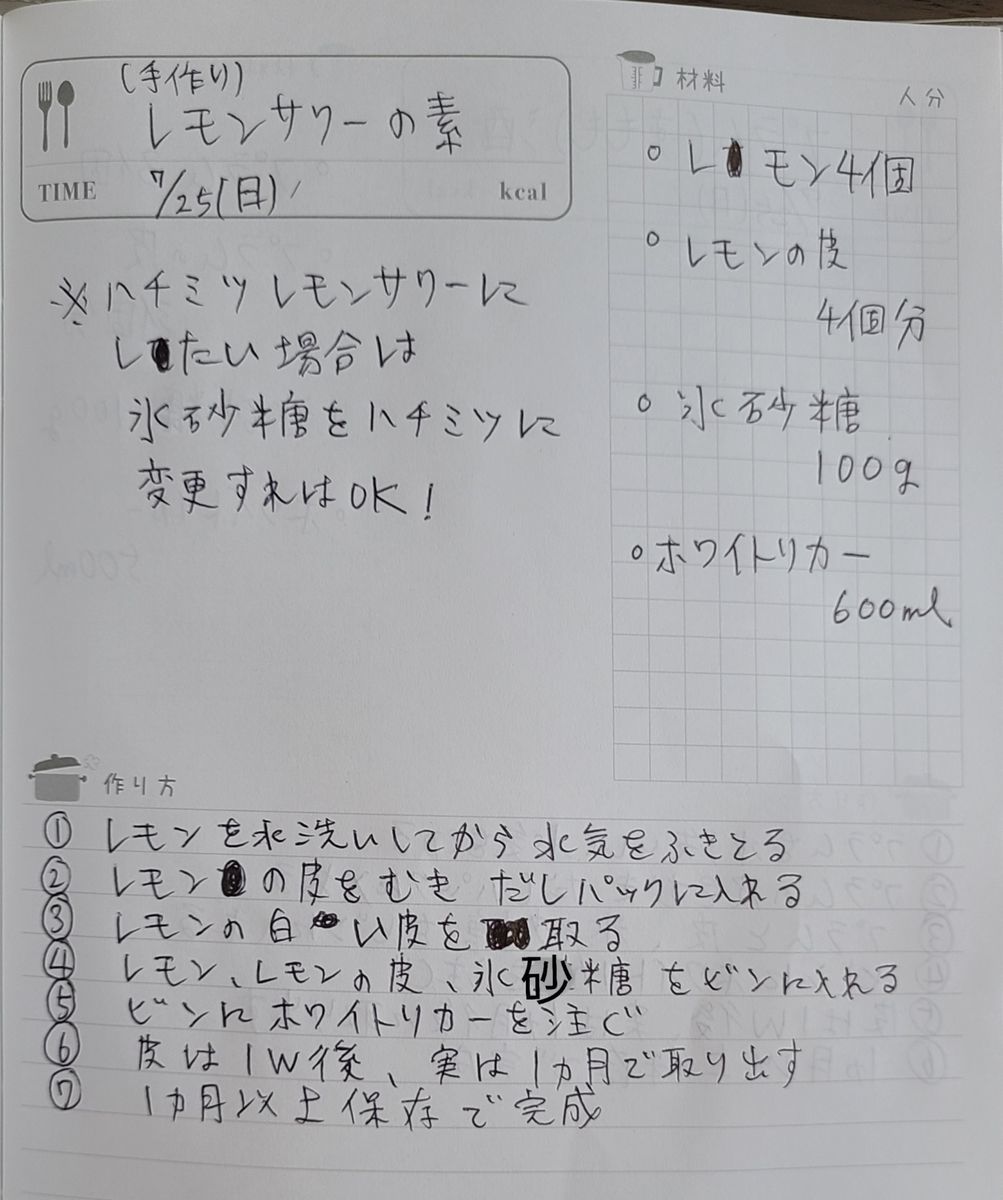 (手作り)
レモンサワーの素
TIME 7/25(日) kcal
※ハチミツレモンサワーに
したい場合は
氷砂糖をハチミツに
変更すればOK!
材料 人分
○ レモン4個
○ レモンの皮
4個分
○ 氷砂糖
100g
○ ホワイトリカー
600ml
作り方
① レモンを水洗いしてから水気をふきとる
② レモンの皮をむき だしパックに入れる
③ レモンの白い皮を取る
④ レモン、レモンの皮、氷砂糖をビンに入れる
⑤ ビンにホワイトリカーを注ぐ
⑥ 皮は1W後、実は1ヵ月で取り出す
⑦ 1ヵ月以上保存で完成